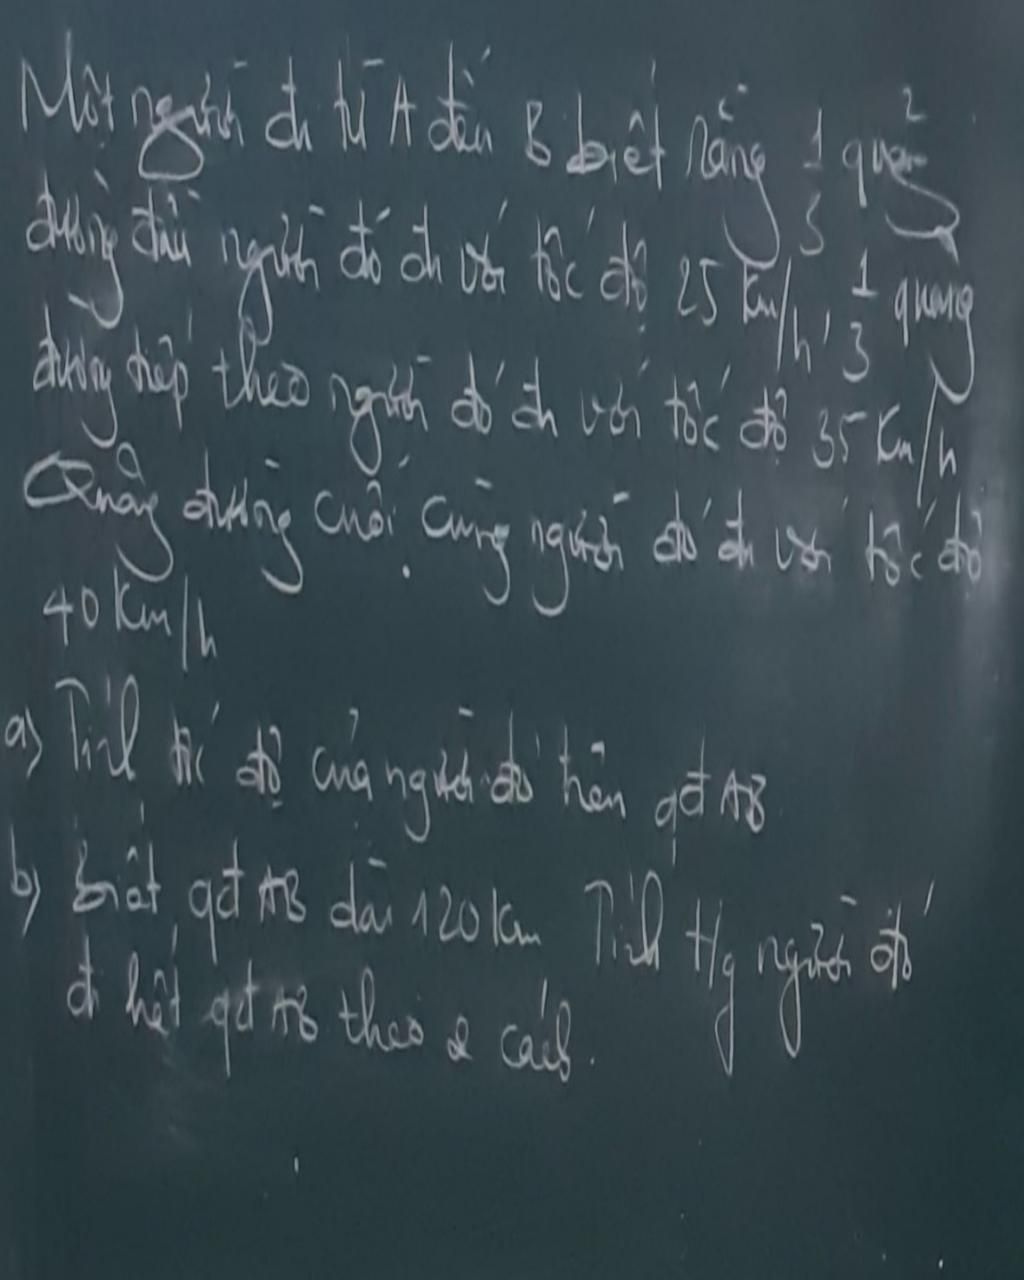 Một người đi từ A đến B biết rằng 1/3 quãng
đường đầu người đó đi với tốc độ 25 km/h, 1/3 quãng
đường tiếp theo người đó đi với tốc độ 35 km/h
Quãng đường cuối cùng người đó đi với tốc độ
40 km/h
a) Tính tốc độ của người đó trên qđ AB
b) biết qđ AB dài 120 km Tính t/g người đó
đi hết qđ AB theo 2 cách.